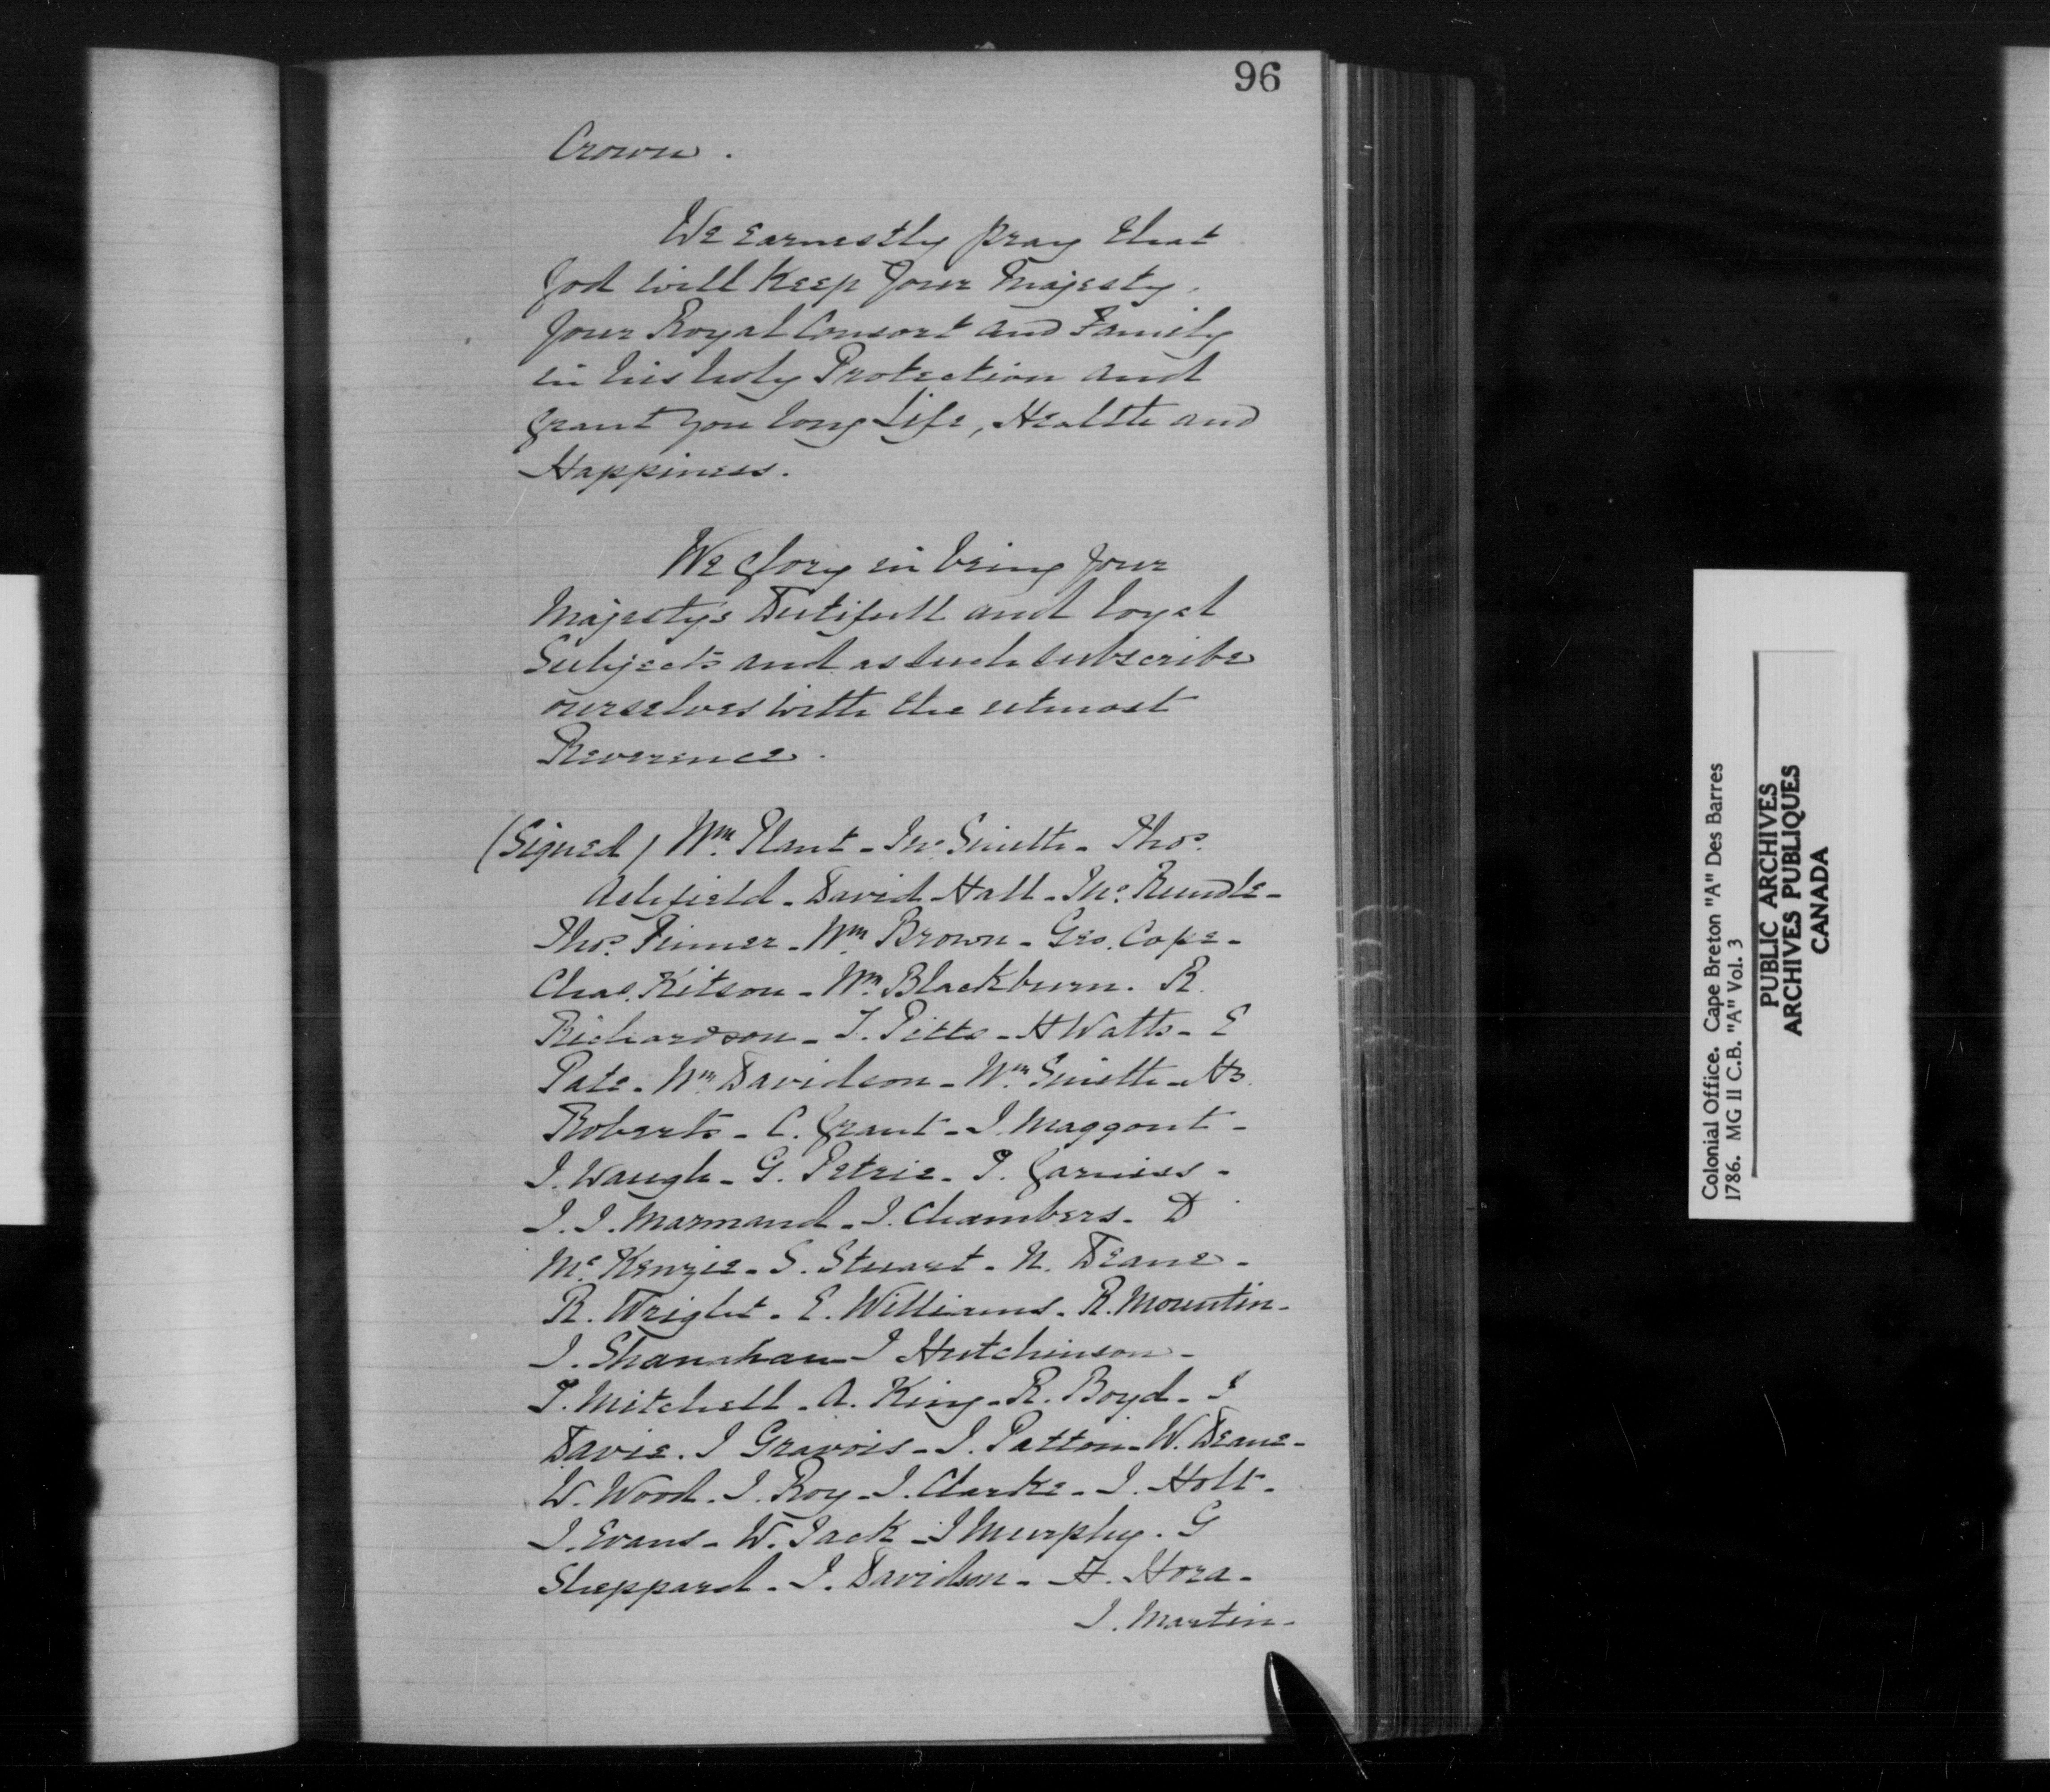 96
Crown.
We earnestly pray that
God will Keep Your Majesty,
Your Royal Consort and Family
in his holy Protection and
grant you long Life, Health and
Happiness.
We Glory in being Your
Majesty's Dutifull and loyal
Subjects and as such subscribe
ourselves with the utmost
Reverence.
(Signed) Wm. Plant - Jno. Smith - Thos.
Ashfield - David Hall - Jno. Rundle -
Thos. Pinner - Wm. Brown - Geo. Cope -
Chas. Kitson - Wm. Blackburn. R.
Richardson - T. Pitts - H Watts - E
Pate - Wm. Davidson - Wm. Smith - 
Roberts - C. Grant - J. Maggont -
J. Waugh - G. Petrie - P. Garniss -
J. J. Marmand - J. Chambers - D
Mc. Kenzie - S. Stuart - N. Deane -
R. Wright - E. Williams - R. Mountin -
J. Shanahan - J Hutchinson -
T. Mitchell - A. King - R. Boyd - J
Davie. J Gravois - J. Patton - W. Deane -
W. Wood - J. Roy - J. Clarke - J. Holt -
J. Evans - W. Jack - J Murphy. G
Sheppard - J. Davidson - H. Hora -
J. Martin -
Colonial Office. Cape Breton "A" Des Barres
1786. MG II C.B. "A" Vol. 3
PUBLIC ARCHIVES
ARCHIVES PUBLIQUES
CANADA